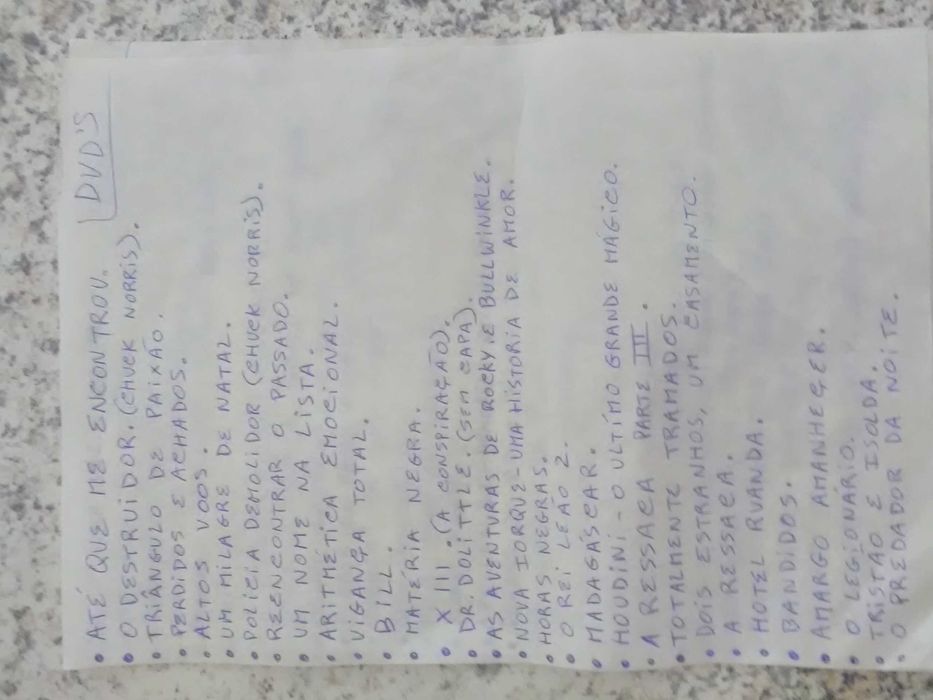 DVD'S
• ATÉ QUE ME ENCONTROU.
• O DESTRUIDOR. (CHUCK NORRIS).
• TRIÂNGULO DE PAIXÃO.
• PERDIDOS E ACHADOS.
• ALTOS VOOS.
• UM MILAGRE DE NATAL.
• POLICIA DEMOLIDOR (CHUCK NORRIS).
• REENCONTRAR O PASSADO.
• UM NOME NA LISTA.
• ARITMÉTICA EMOCIONAL.
• VIGANÇA TOTAL.
• BILL.
• MATÉRIA NEGRA.
• X III. (A CONSPIRAÇÃO).
• DR. DOLITTLE. (SEM CAPA).
• AS AVENTURAS DE ROCKY E BULLWINKLE.
• NOVA IORQUE - UMA HISTORIA DE AMOR.
• HORAS NEGRAS.
• O REI LEÃO 2.
• MADAGÁSCAR.
• HOUDINI - O ULTIMO GRANDE MÁGICO.
• A RESSACA PARTE III.
• TOTALMENTE TRAMADOS.
• DOIS ESTRANHOS, UM CASAMENTO.
• A RESSACA.
• HOTEL RUANDA.
• BANDIDOS.
• AMARGO AMANHEÇER.
• O LEGIONÁRIO.
• TRISTÃO E ISOLDA.
• O PREDADOR DA NOITE.